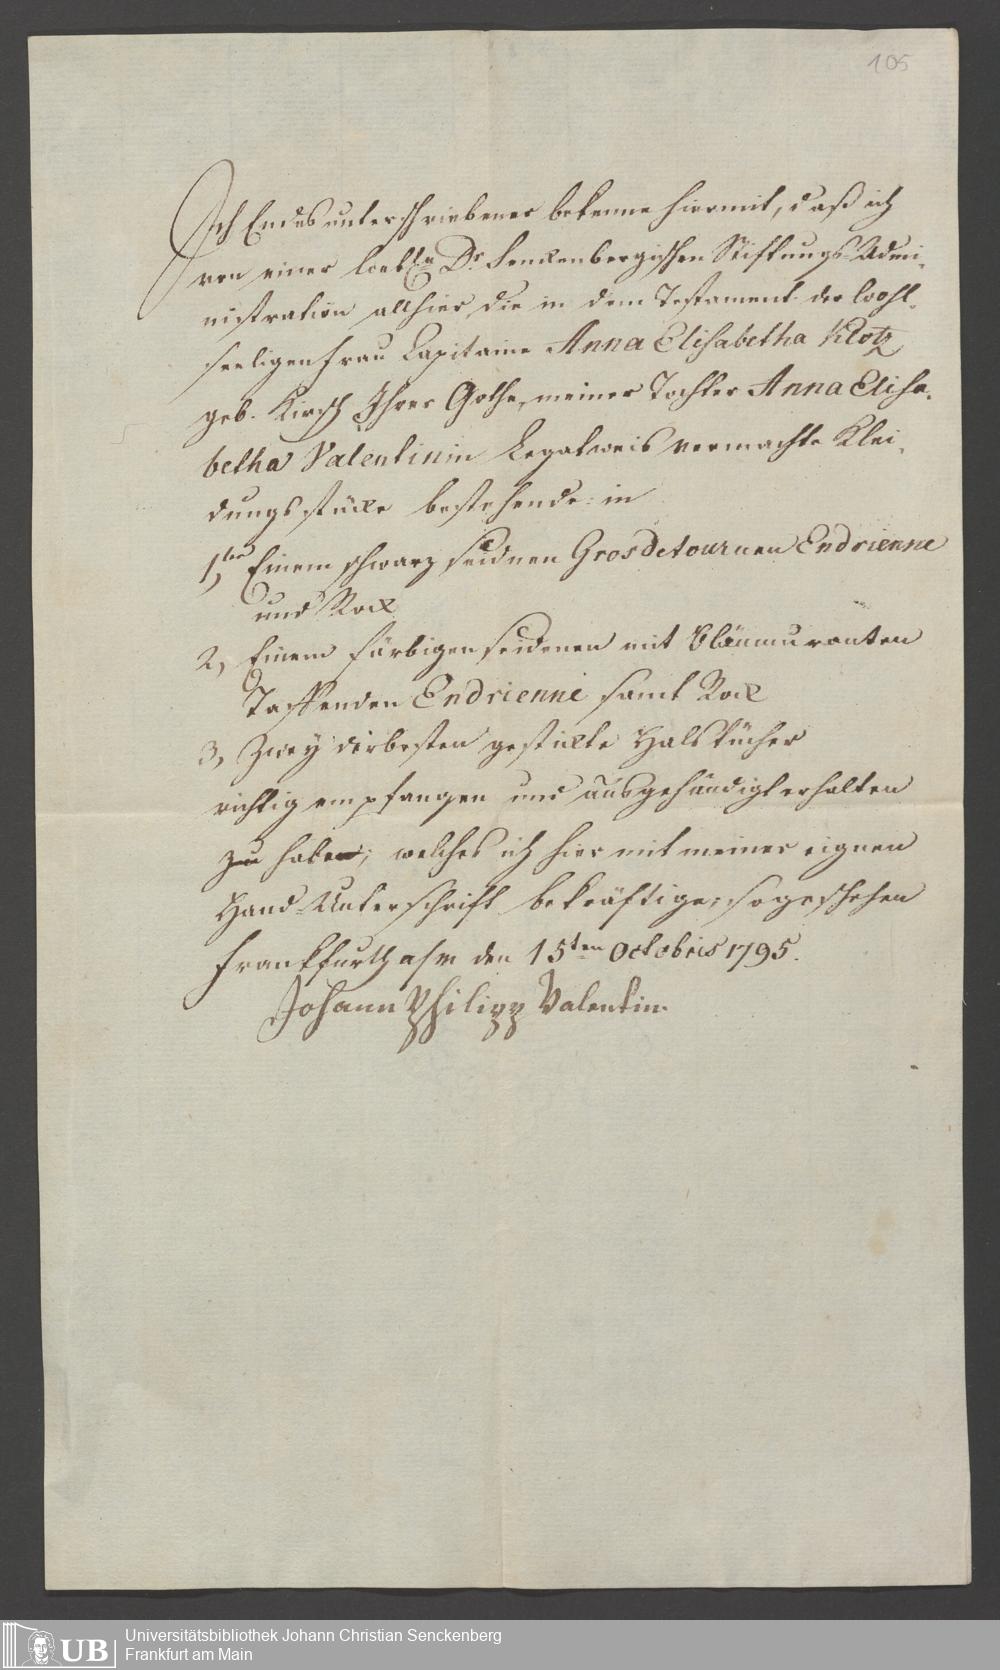 105
Ich Endes unterschriebener bekenne hiermit, daß ich
von einer löbl.en Dr. Senckenbergischen Stiftungs-Admi-
nistration allhier, die in dem Testament der Wohl-
seeligen Frau Capitaine Anna Elisabetha Klotz
geb. Kirsch Ihrer Gothe, meiner Tochter Anna Elisa-
betha Valentinin Legatweis vermachte Klei-
dungsstücke bestehende in
1,tens Einem schwarz seidnen Grosdetournen Endrienne
und Rock
2, Einem färbigen seidenen mit bläumuranten
Taffenden Endrienne samt Rock
3, Zwey der besten gestickte Halstücher
richtig empfangen und ausgehändigt erhalten
zu haben; welches ich hier mit meiner eignen
Hand-Unterschrift bekräftige; so geschehen
Frankfurth a/m den 15ten Octobris 1795.
Johann Philipp Valentin.
UB Universitätsbibliothek Johann Christian Senckenberg
Frankfurt am Main